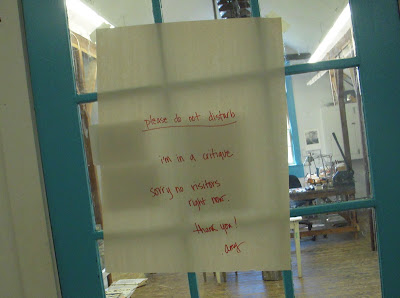 please do not disturb
i'm in a critique
sorry no visitors
right now.
thank you!
amy